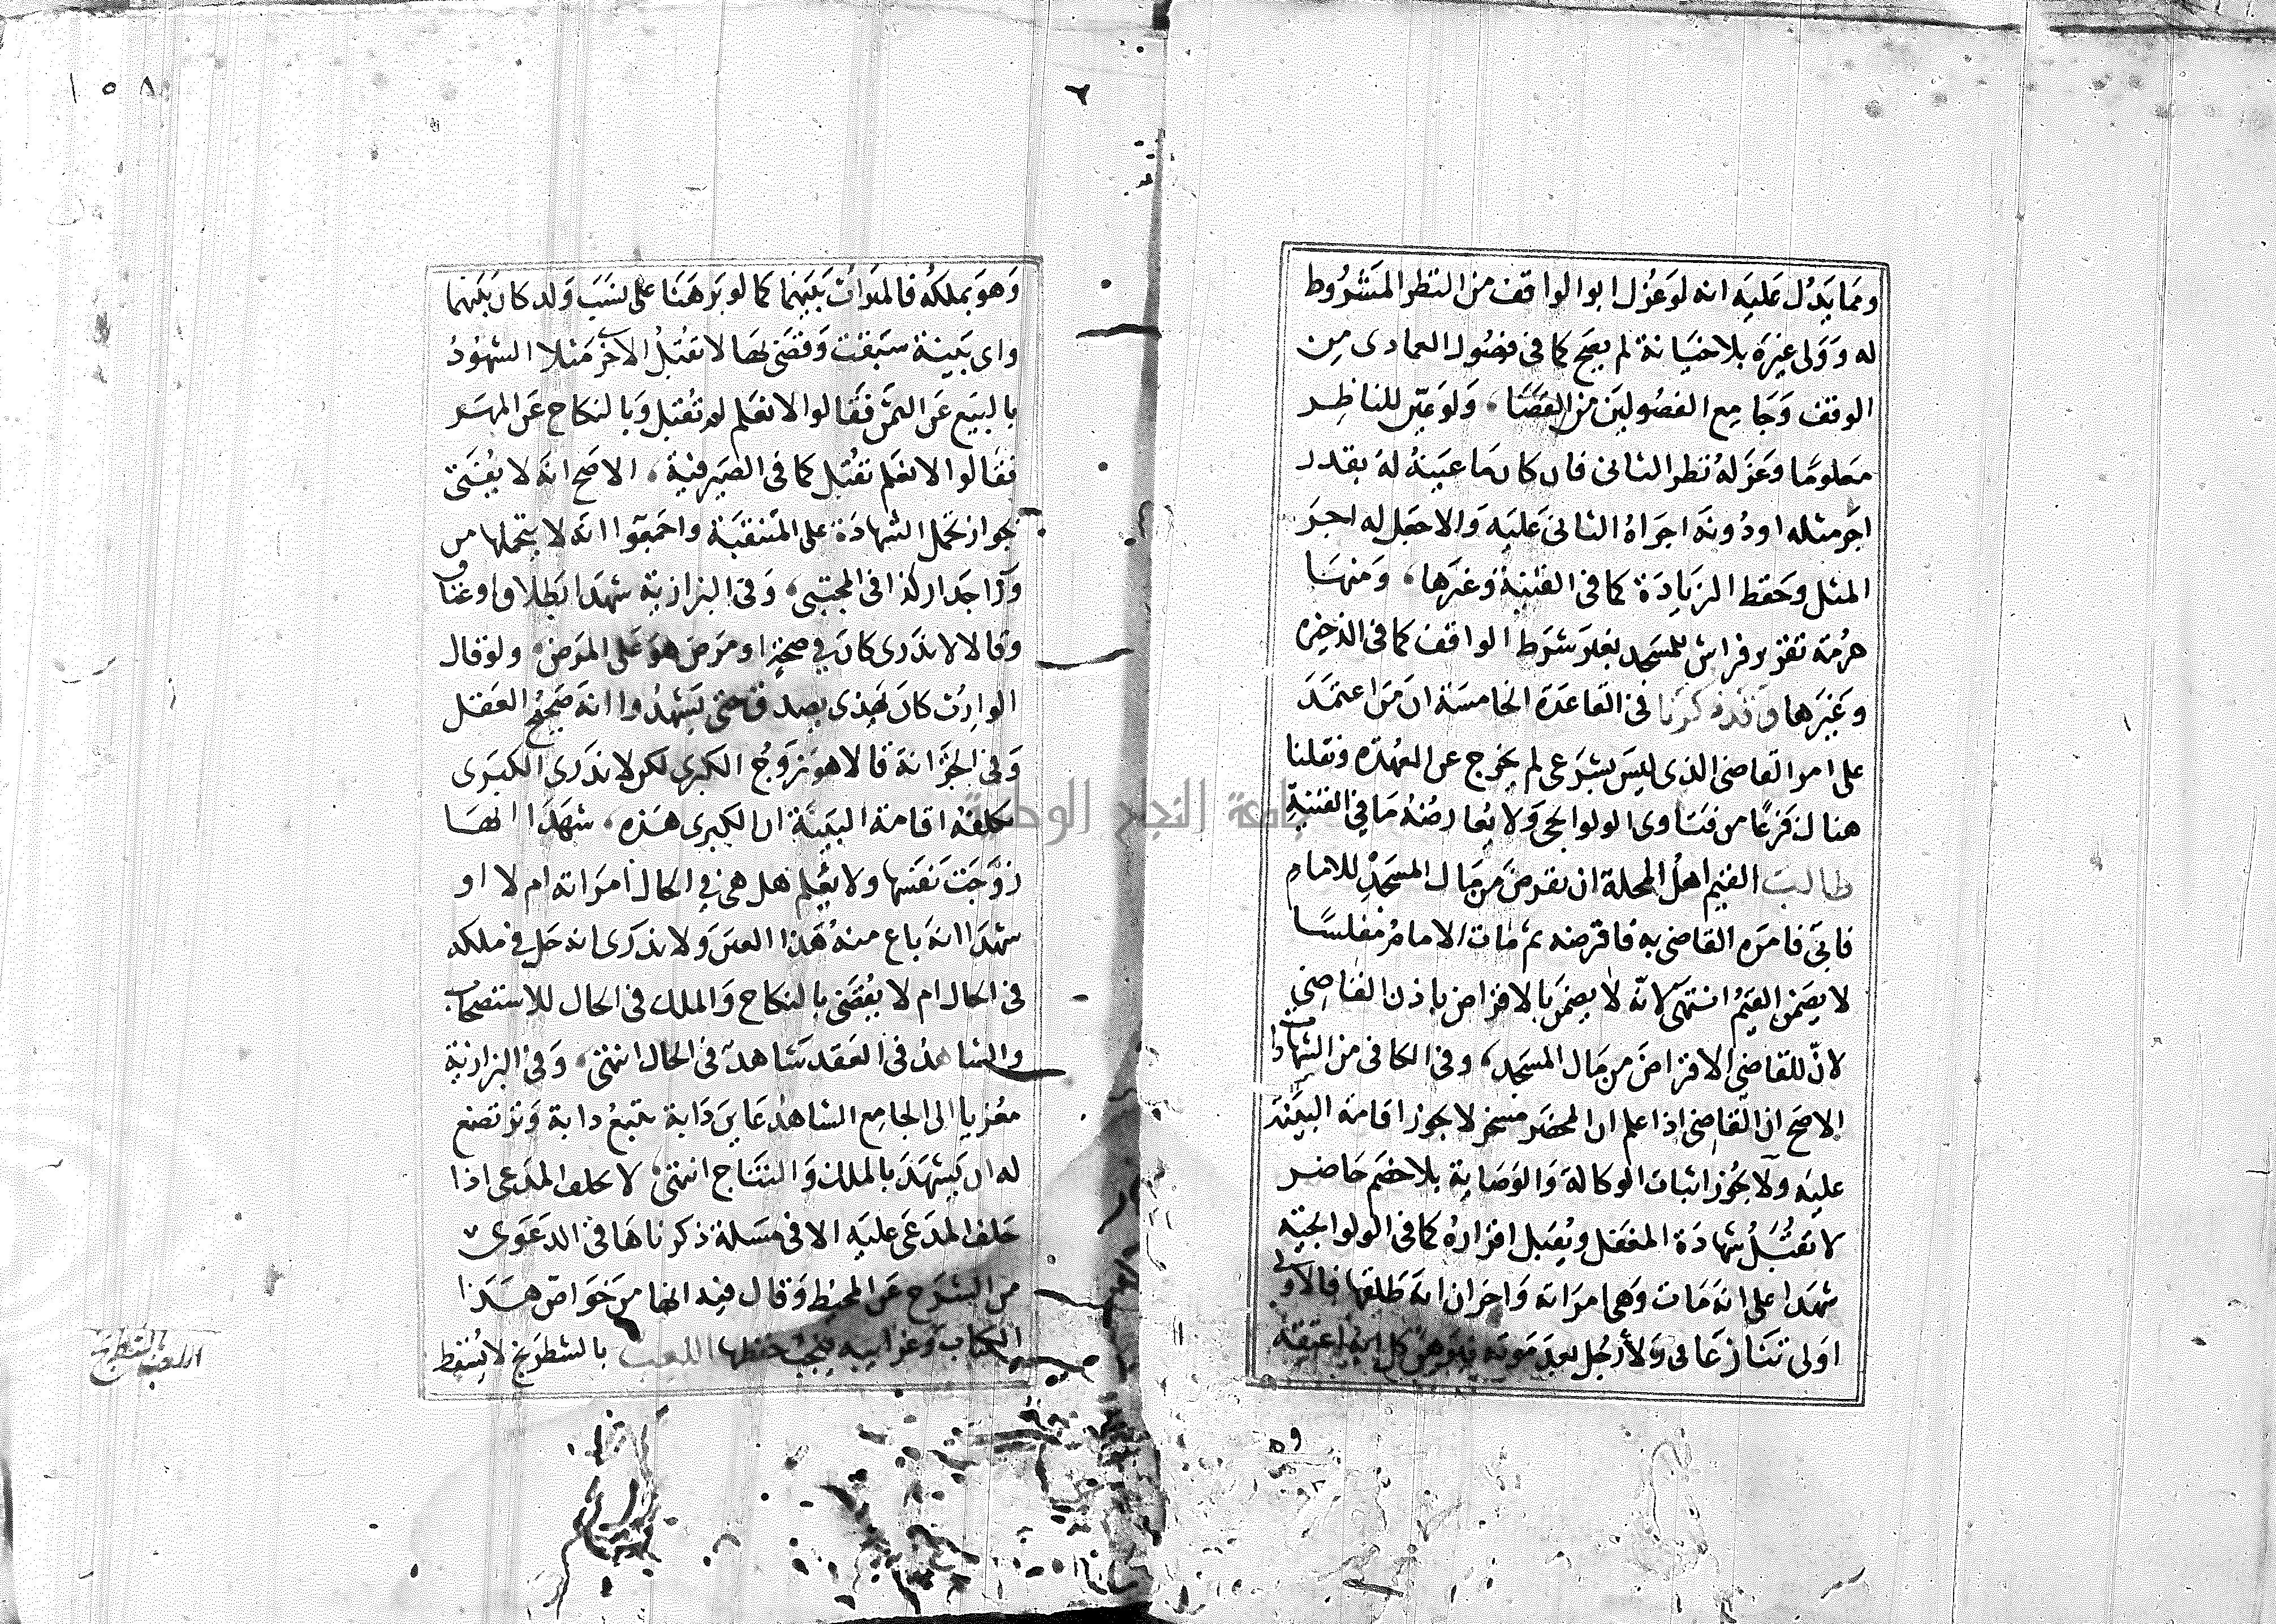 ومما يدل عليه انه لو عزل ابو الواقف من النظر المشروط
له وولى غيره بلا خيانة لم يصح كما فى فصول العمادى من
الوقف وجامع الفصولين من القضا، ولو عين للناظر
معلوما وعزله نظر الثانى فان كان ما عينه له بقدر
اجر مثله او دونه اجراه الثانى عليه والا جعل له اجر
المثل وحط الزيادة كما فى القنية وغيرها، ومنها
حرمة تقرير فراش للمسجد بغير شرط الواقف كما فى الذخيره
وغيرها وقد ذكرنا فى القاعدة الخامسة ان من اعتمد
على امر القاضى الذى ليس بشرعى لم يخرج عن العهدة ونقلنا
هناك فرعا من فتاوى الولوالجى ولا يعارضه ما فى القنية
طالب القيم اهل المحلة ان يقرض من مال المسجد للامام
فابى فامره القاضى به فاقرضه ثم مات الامام مفلسا
لا يضمن القيم انتهى لانه لا يضمن بالاقراض باذن القاضى
لان للقاضى الاقراض من مال المسجد، وفى الكافى من الشهادات
الاصح ان القاضى اذا علم ان المحضر مسخر لا يجوز اقامة البينة
عليه ولا يجوز اثبات الوكالة والوصاية بلا خصم حاضر
لا تقبل شهادة المغفل ويقبل اقراره كما فى الولوالجية
شهدا على انه مات وهى امراته واخران انه طلقها فالاولى
اولى تنازعا فى ولا رجل بعد موته فبرهن كل انه اعتقه
٥٩
١٥٨
٢
وهو يملكه فالميراث بينهما كما لو برهنا على نسب ولد كان بينهما
واى بينة سبقت وقضى بها لا تقبل الاخرى مثلا الشهود
بالبيع عن الثمن فقالوا لا نعلم لم تقبل وبالنكاح عن المهر
فقالوا لا نعلم تقبل كما فى الصيرفية، الاصح انه لا يفتى
بجواز تحمل الشهادة على المتنقبة واجمعوا انه لا يتحملها من
ورا جدار كذا فى المجتبى، وفى البزازية شهدا بطلاق او عتاق
وقالا لا ندرى كان فى صحة او مرض هو على المرض، ولو قال
الوارث كان يهذى يصدق حتى يشهدوا انه صحيح العقل
وفى الخزانة قالا هو زوج الكبرى لكن لا ندرى الكبرى
نكلفه اقامة البينة ان الكبرى هذه، شهدا انها
زوجت نفسها ولا نعلم هل هى فى الحال امراته ام لا او
شهدا انه باع منه هذا العين ولا ندرى انه هل فى ملكه
فى الحال ام لا يقضى بالنكاح والملك فى الحال للاستصحاب
والشاهد فى العقد شاهد فى الحال انتهى، وفى البزازية
معزيا الى الجامع الشاهد عاين دابة تتبع دابة وترتضع
له ان يشهد بالملك والنتاج انتهى، لا يحلف المدعى اذا
حلف المدعى عليه الا فى مسلة ذكرناها فى الدعوى
من الشرح عن المحيط وقال فيه انها من خواص هذا
الكتاب وغرايبه فيجب حفظها اللعب بالشطرنج لا يسقط
اللعب بالشطرنج
جامعة النجاح الوطنية